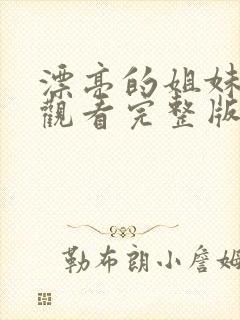 漂亮的姐妹
觀看完整版
勒布朗小詹姆